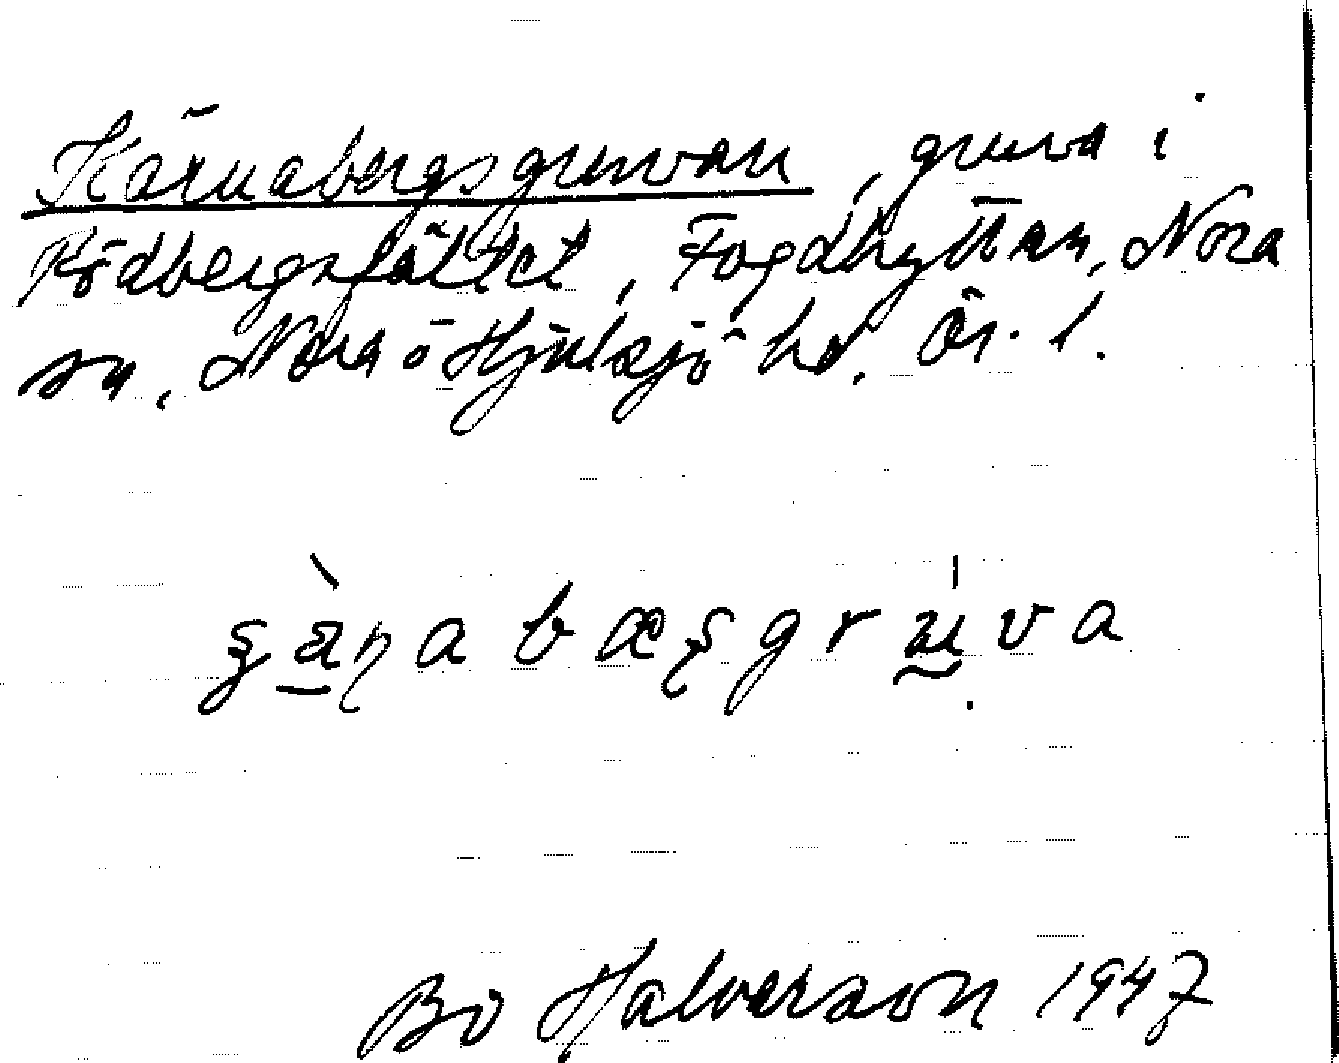 Kärnabergsgruvan, gruva i
Rödbergsfältet, Fogdhyttan, Nora
sn, Nora o Hjulsjö hd. Ör. l.
Bo Halverson 1947